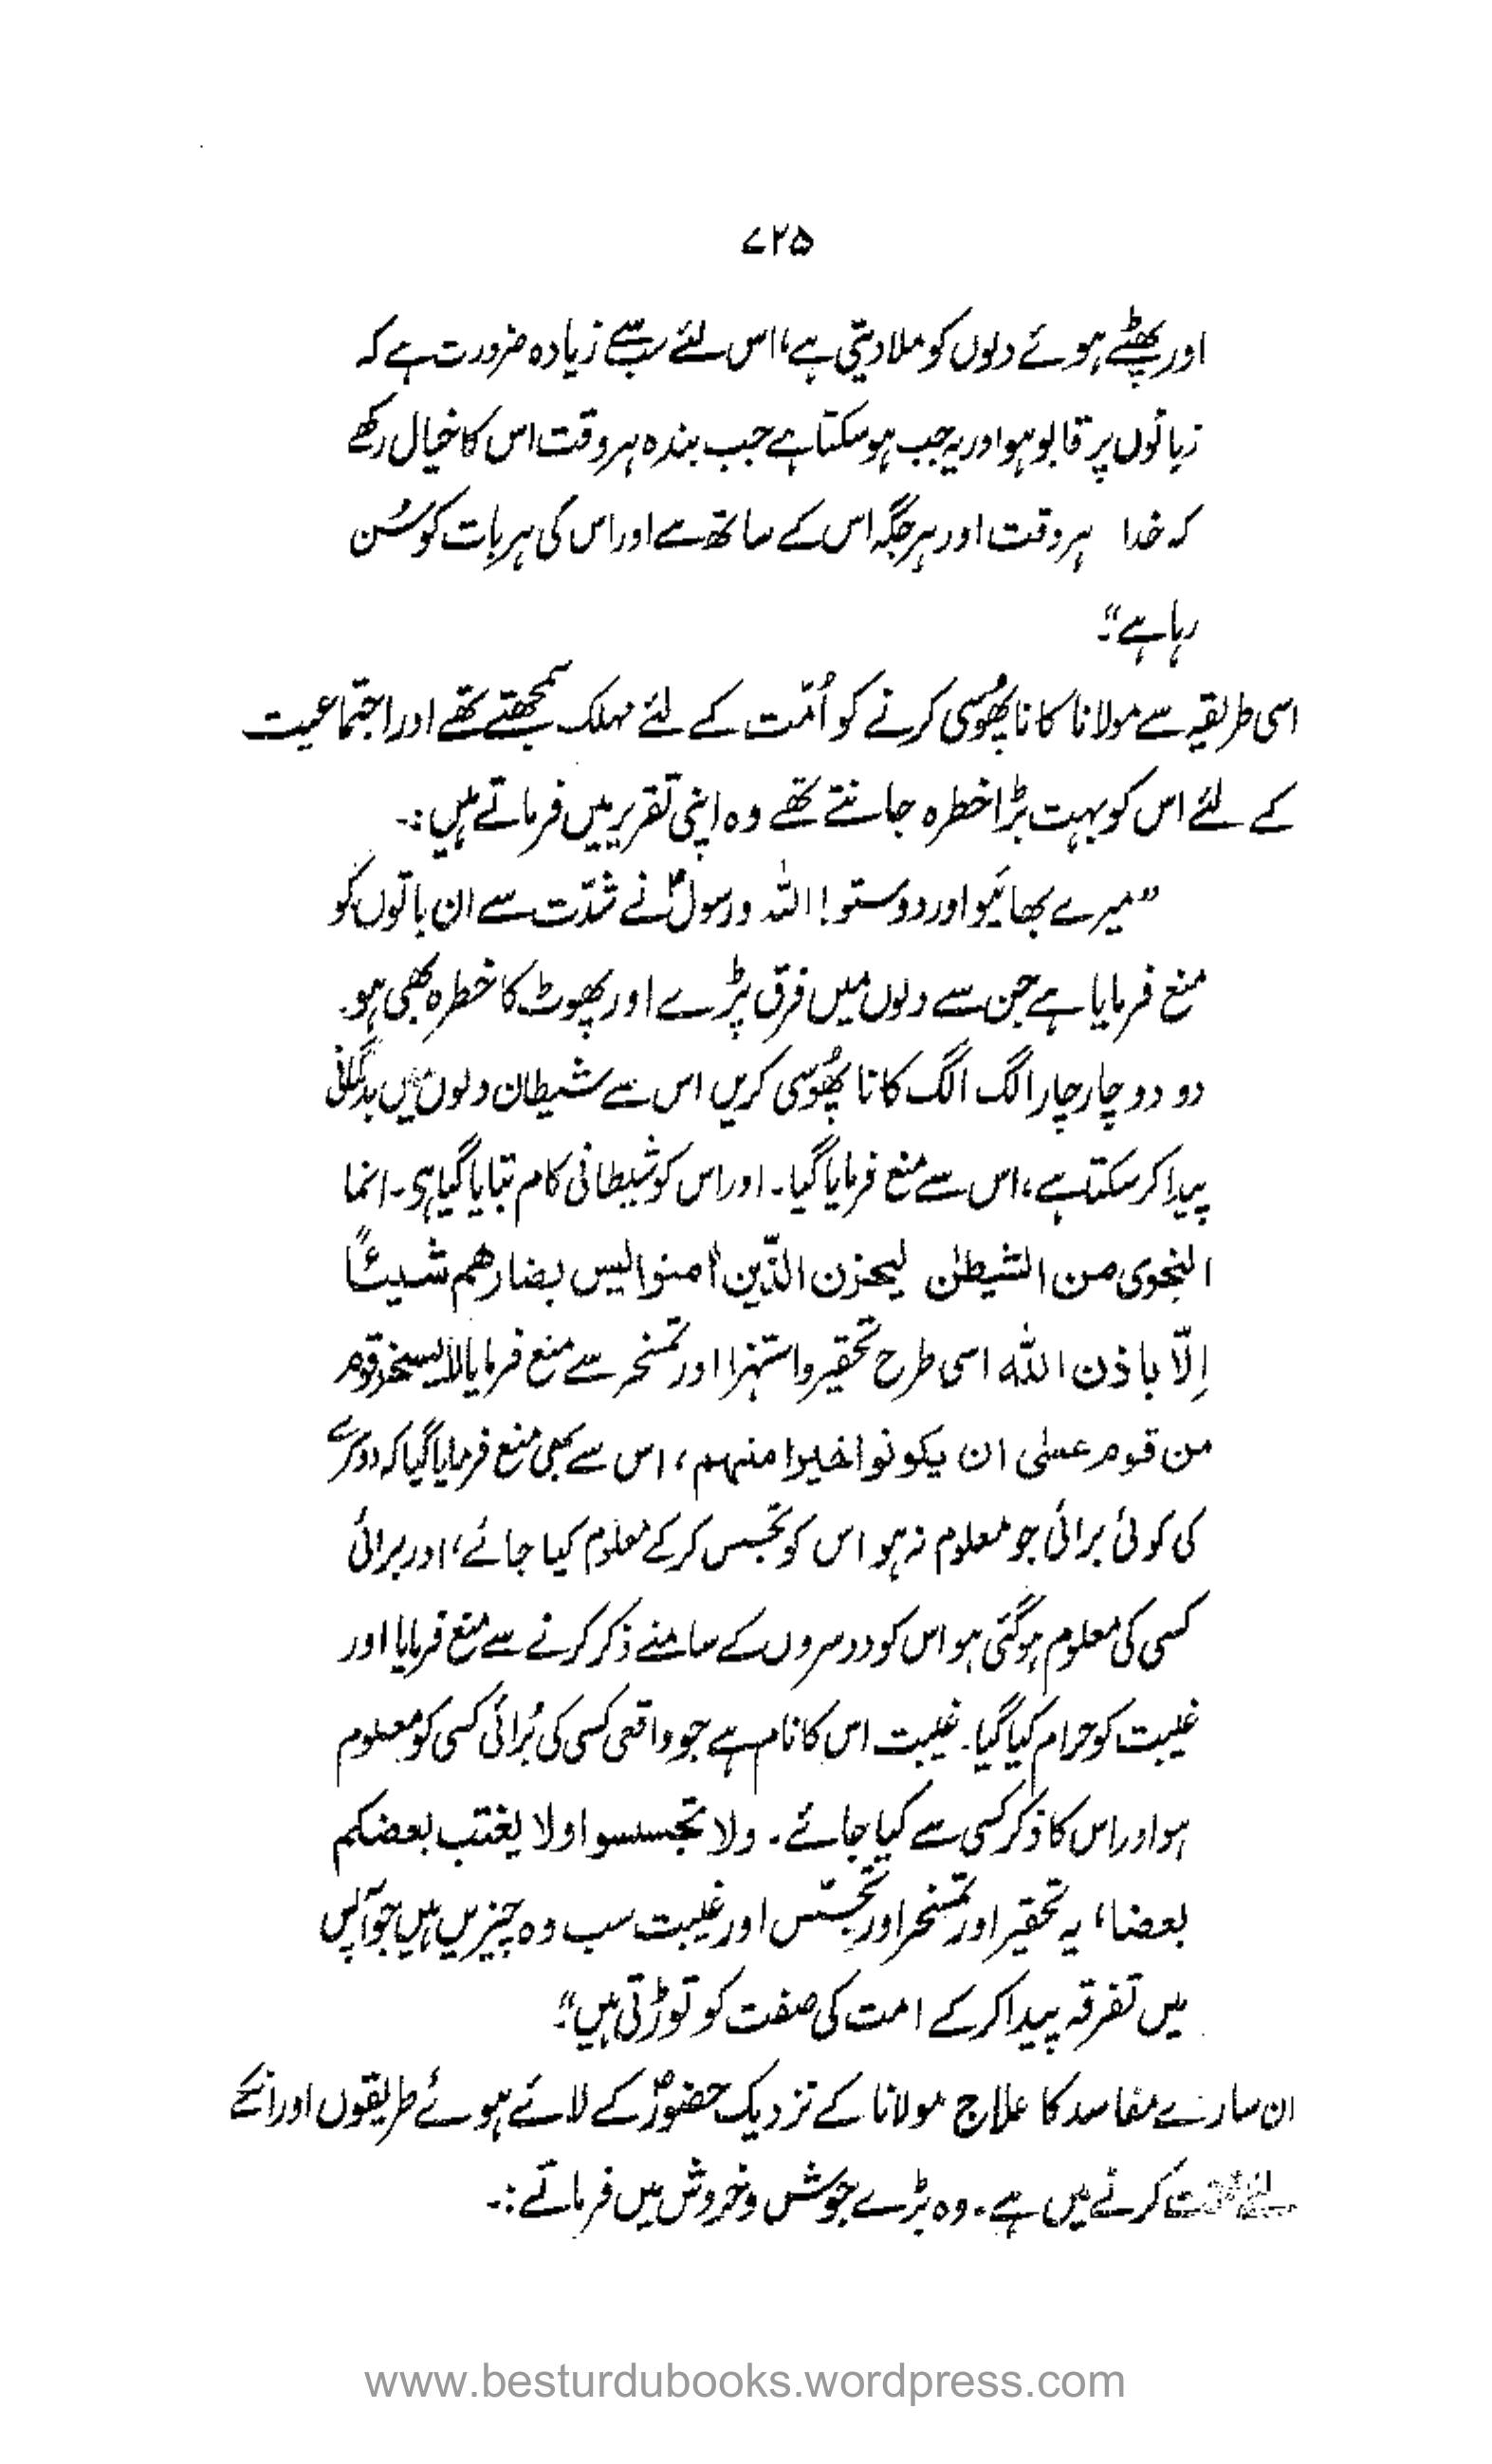 ۷۲۵
اور پھٹے ہوئے دلوں کو ملا دیتی ہے، اس لئے سب سے زیادہ ضرورت ہے کہ
زبانوں پر قابو ہو اور یہ جب ہو سکتا ہے جب بندہ ہر وقت اس کا خیال رکھے
کہ خدا ہر وقت اور ہر جگہ اس کے ساتھ ہے اور اس کی ہر بات کو سُن
رہا ہے"۔
اسی طریقہ سے مولانا کانا پھُوسی کرنے کو اُمّت کے لئے مہلک سمجھتے تھے اور اجتماعیت
کے لئے اس کو بہت بڑا خطرہ جانتے تھے وہ اپنی تقریر میں فرماتے ہیں:۔
"میرے بھائیو اور دوستو! اللہ و رسولؐ نے شدّت سے ان باتوں کو
منع فرمایا ہے جن سے دلوں میں فرق پڑے اور پھوٹ کا خطرہ بھی ہو۔
دو دو چار چار الگ الگ کانا پھُوسی کریں اس سے شیطان دلوں میں بدگمانی
پیدا کر سکتا ہے، اس سے منع فرمایا گیا۔ اور اس کو شیطانی کام بتایا گیا ہی۔ انما
النجوی من الشیطٰن لیحزن الذّین اٰمنوا لیس بضارھم شیئًا
اِلّا باذن اللہ اسی طرح تحقیر و استہزا اور تمسخر سے منع فرمایا لا یسخر قوم
من قوم عسٰی ان یکونوا خیرا منہم، اس سے بھی منع فرمایا گیا کہ دوسرے
کی کوئی برائی جو معلوم نہ ہو اس کو تجسس کر کے معلوم کیا جائے، اور برائی
کسی کی معلوم ہو گئی ہو اس کو دوسروں کے سامنے ذکر کرنے سے منع فرمایا اور
غیبت کو حرام کیا گیا۔ غیبت اس کا نام ہے جو واقعی کسی کی بُرائی کسی کو معلوم
ہو اور اس کا ذکر کسی سے کیا جائے۔ ولا تجسسوا ولا یغتب بعضکم
بعضا، یہ تحقیر اور تمسخر اور تجسّس اور غیبت سب وہ چیزیں ہیں جو آپس
میں تفرقہ پیدا کر کے امت کی صفت کو توڑتی ہیں"۔
ان سارے مفاسد کا علاج مولانا کے نزدیک حضورؐ کے لائے ہوئے طریقوں اور انکے
لئے کرنے میں ہے۔ وہ بڑے جوش و خروش میں فرماتے:۔
www.besturdubooks.wordpress.com